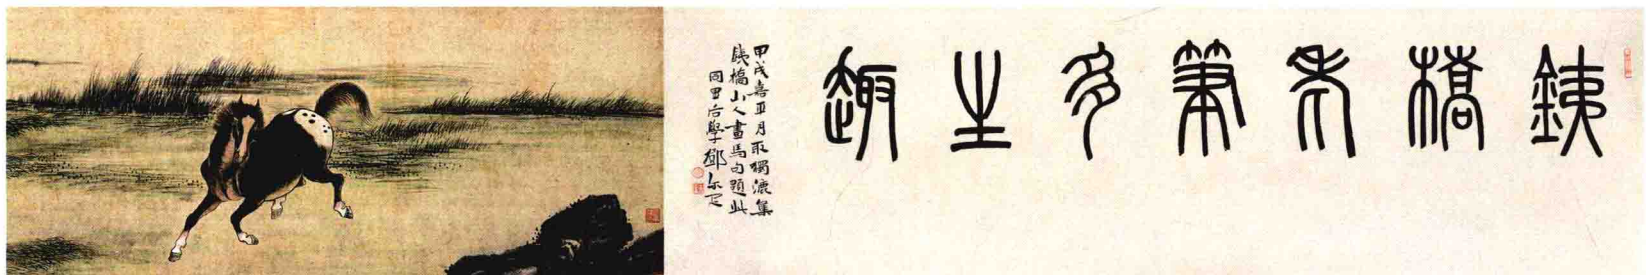 銕橋老筆多生趣
甲戌嘉平月取獨漉集
銕橋山人畫馬句題此
同里后學鄧尔疋